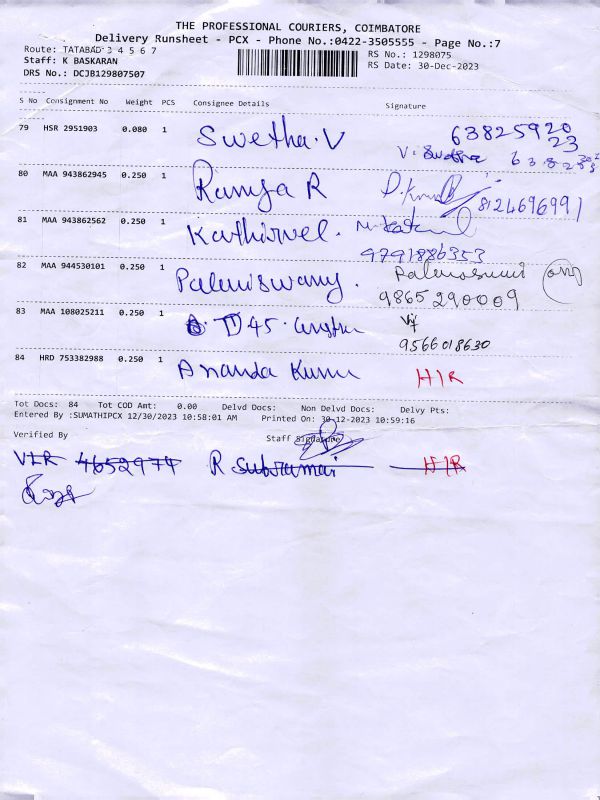 THE PROFESSIONAL COURIERS, COIMBATORE
Delivery Runsheet - PCX - Phone No.:0422-3505555 - Page No.:7
Route: TATABAD 3 4 5 6 7 RS No.: 1298075
Staff: K BASKARAN RS Date: 30-Dec-2023
DRS No.: DCJB129807507
S No Consignment No Weight PCS Consignee Details Signature
79 HSR 2951903 0.080 1 Swetha.V 6382592023
V. Swetha
80 MAA 943862945 0.250 1 Ramya R 8124696991
81 MAA 943862562 0.250 1 Kathirvel.
9791886353
82 MAA 944530101 0.250 1 Palaniswamy.
9865290009
83 MAA 108025211 0.250 1 D45
9566018630
84 HRD 753382988 0.250 1 Ananda Kumar H/R
Tot Docs: 84 Tot COD Amt: 0.00 Delvd Docs: Non Delvd Docs: Delvy Pts:
Entered By :SUMATHIPCX 12/30/2023 10:58:01 AM Printed On: 30-12-2023 10:59:16
Verified By Staff Signature
VLR 4652974 R Subramai H/R